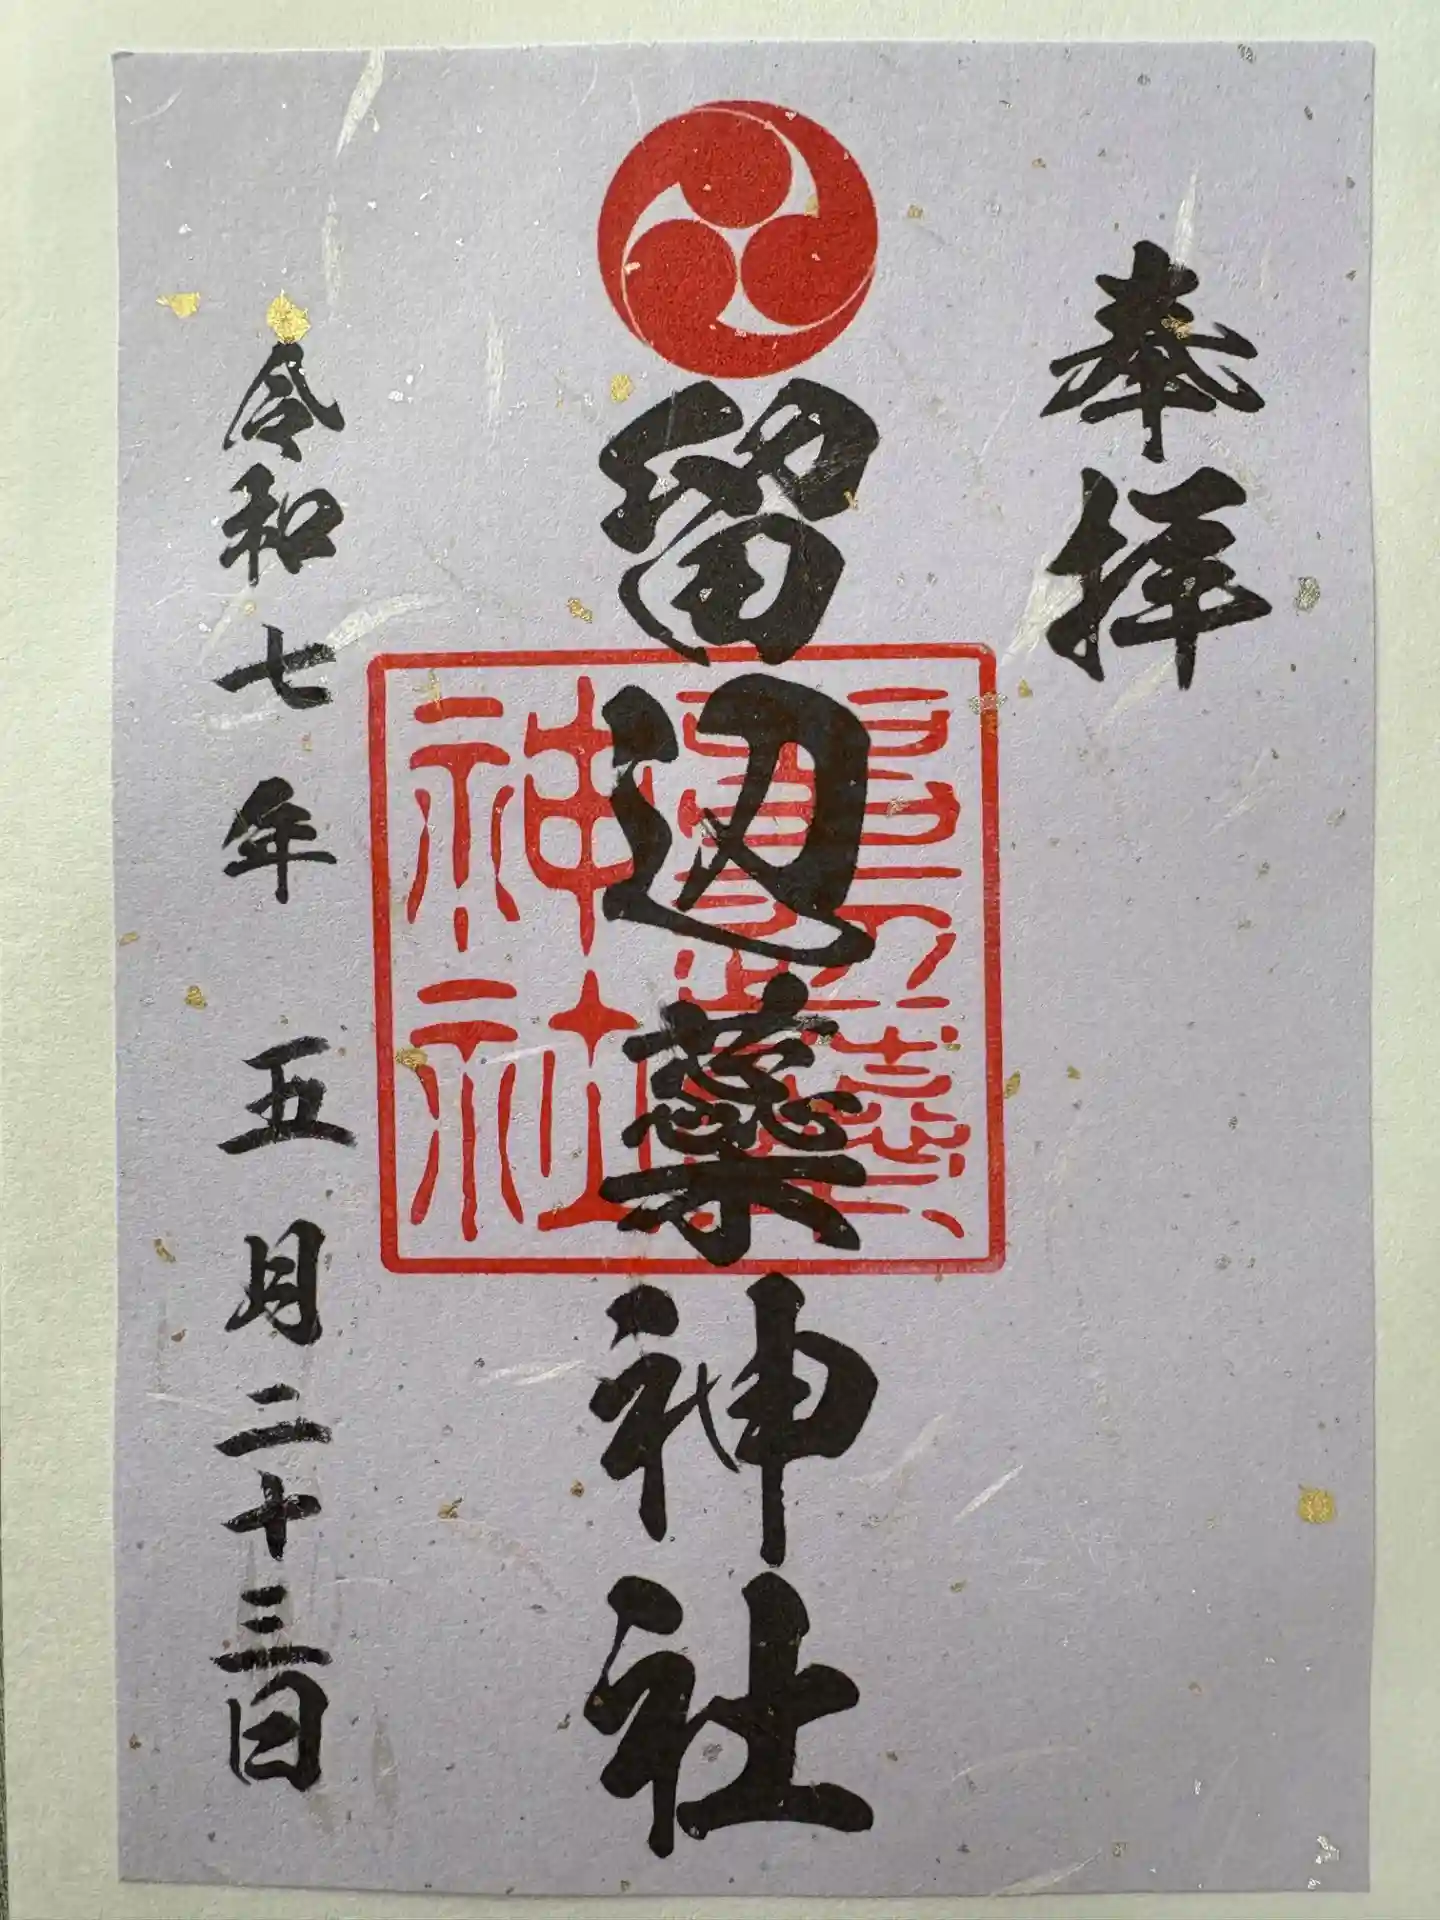 奉拝
留辺蘂神社
神社
令和七年五月二十三日